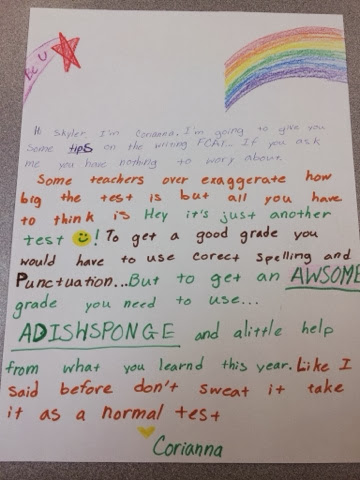 Be U
Hi Skyler, I'm Corianna. I'm going to give you
some tips on the writing FCAT... If you ask
me you have nothing to wory about.
Some teachers over exaggerate how
big the test is but all you have
to think is Hey it's just another
test ! To get a good grade you
would have to use corect spelling and
Punctuation...But to get an AWSOME
grade you need to use...
ADISHSPONGE and alittle help
from what you learnd this year. Like I
said before don't sweat it take
it as a normal test
Corianna